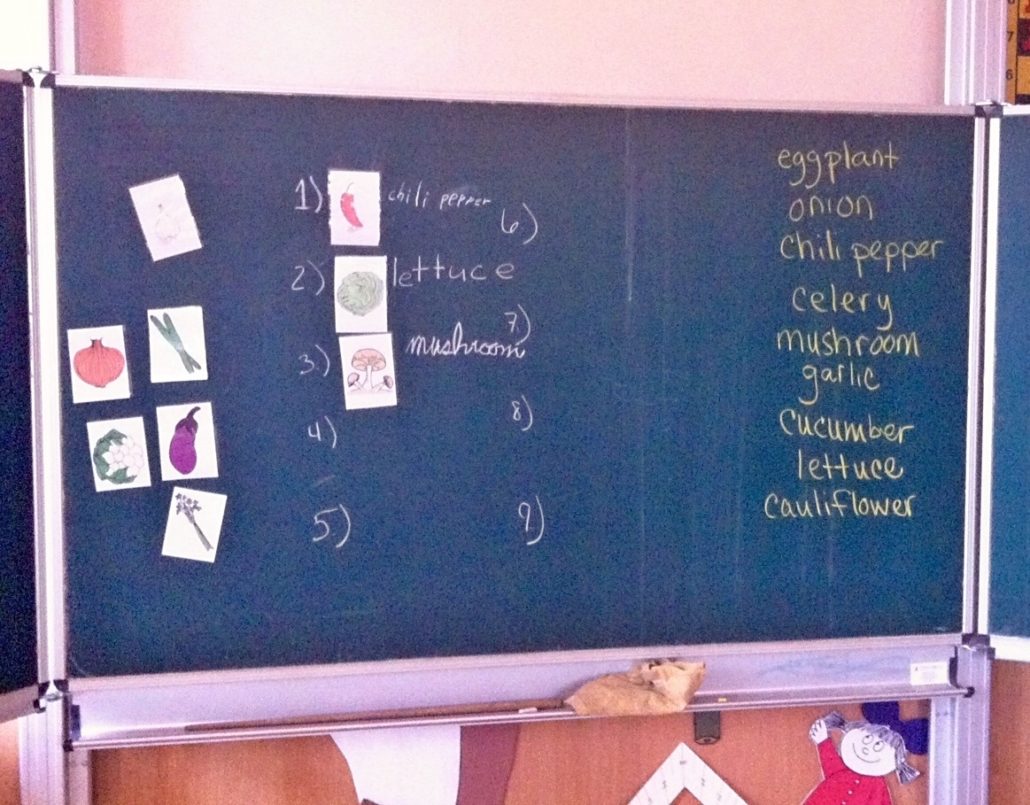 1) chili pepper
2) lettuce
3.) mushroom
4)
5)
6)
7.)
8)
9)
eggplant
onion
chili pepper
celery
mushroom
garlic
cucumber
lettuce
cauliflower
7
6